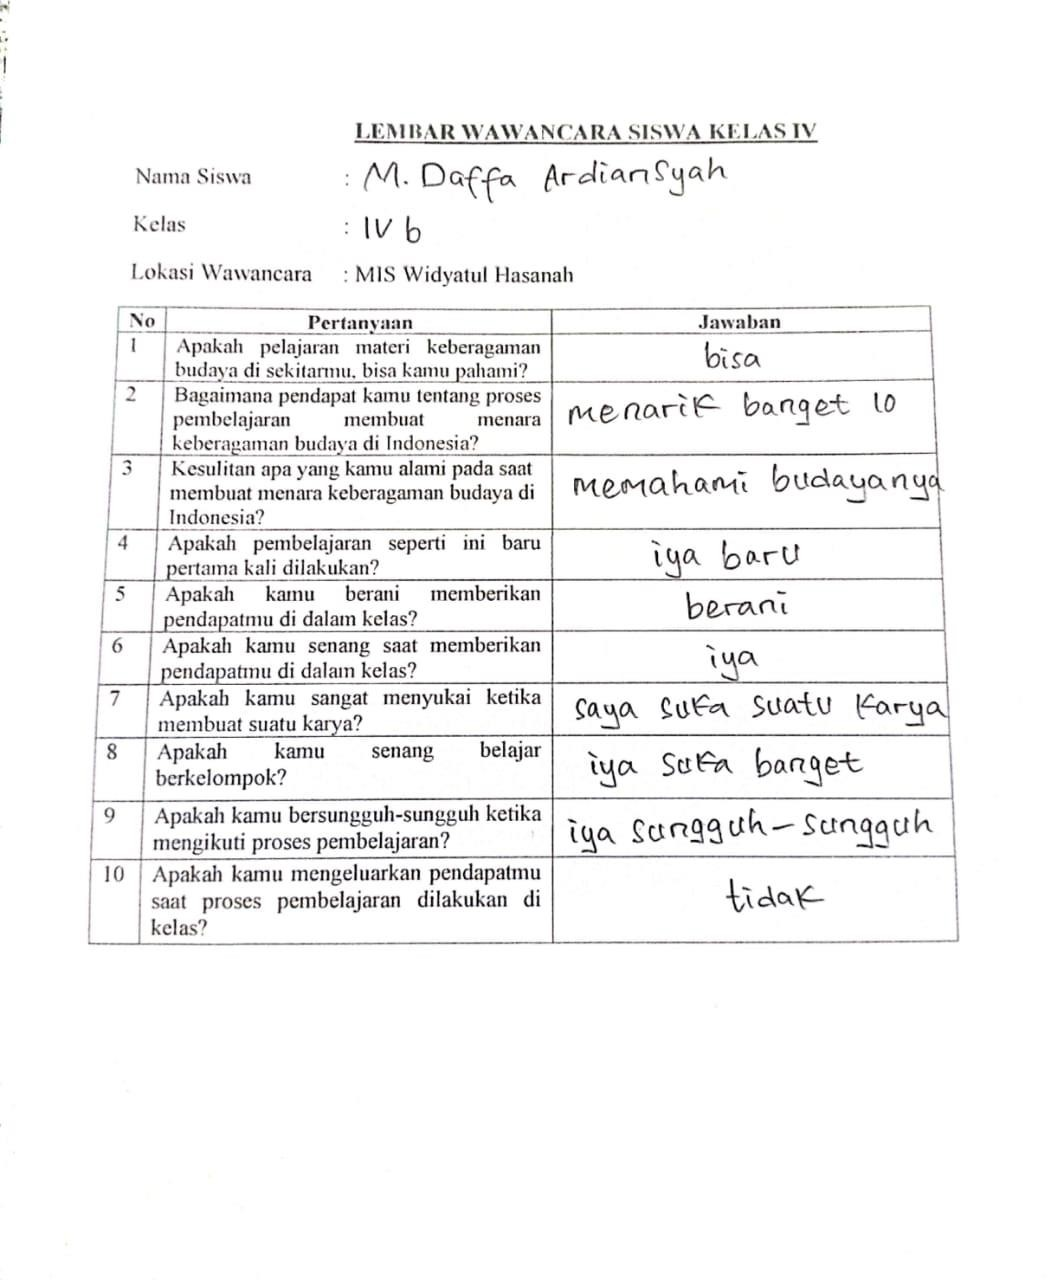 LEMBAR WAWANCARA SISWA KELAS IV
Nama Siswa : M. Daffa Ardiansyah
Kelas : IV b
Lokasi Wawancara : MIS Widyatul Hasanah
No Pertanyaan Jawaban
1 Apakah pelajaran materi keberagaman
budaya di sekitarmu, bisa kamu pahami?
bisa
2 Bagaimana pendapat kamu tentang proses
pembelajaran membuat menara
keberagaman budaya di Indonesia?
menarik banget lo
3 Kesulitan apa yang kamu alami pada saat
membuat menara keberagaman budaya di
Indonesia?
memahami budayanya
4 Apakah pembelajaran seperti ini baru
pertama kali dilakukan?
iya baru
5 Apakah kamu berani memberikan
pendapatmu di dalam kelas?
berani
6 Apakah kamu senang saat memberikan
pendapatmu di dalam kelas?
iya
7 Apakah kamu sangat menyukai ketika
membuat suatu karya?
saya suka suatu karya
8 Apakah kamu senang belajar
berkelompok?
iya suka banget
9 Apakah kamu bersungguh-sungguh ketika
mengikuti proses pembelajaran?
iya sungguh-sungguh
10 Apakah kamu mengeluarkan pendapatmu
saat proses pembelajaran dilakukan di
kelas?
tidak